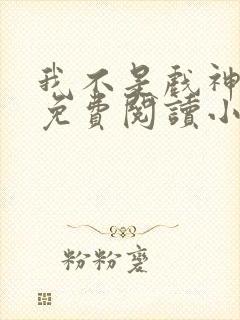 我不是戲神
免費閱讀小
粉粉裹